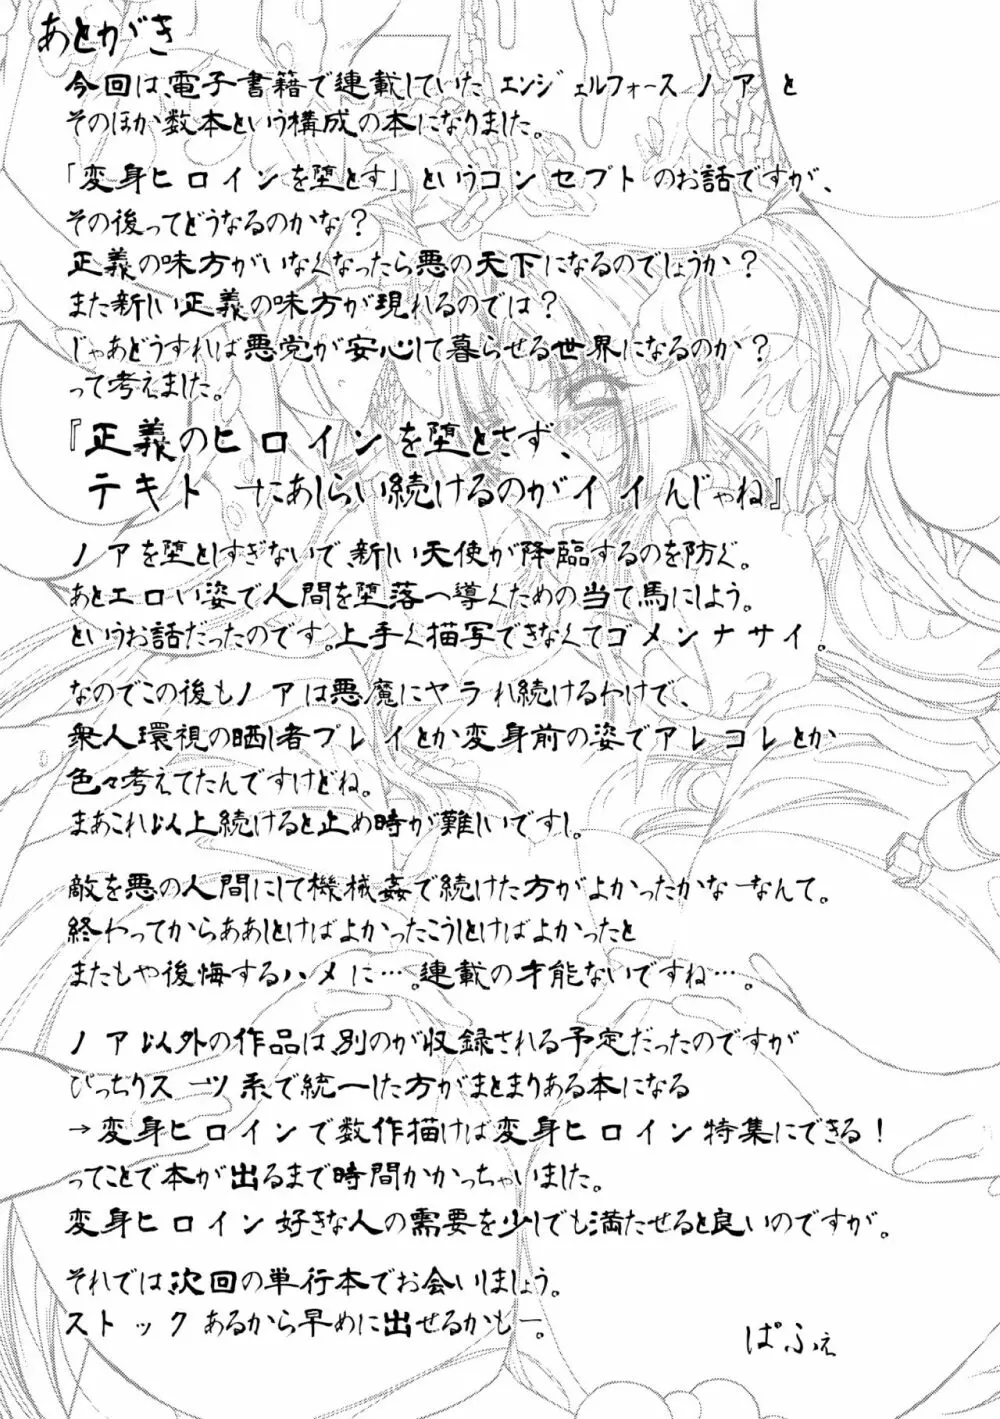 あとがき
今回は、電子書籍で連載していた エンジェルフォース ノア と
そのほか数本という構成の本になりました。
「変身ヒロインを堕とす」というコンセプトのお話ですが、
その後ってどうなるのかな？
正義の味方がいなくなったら悪の天下になるのでしょうか？
また新しい正義の味方が現れるのでは？
じゃあどうすれば悪党が安心して暮らせる世界になるのか？
って考えました。
『正義のヒロインを堕とさず、
テキトーにあしらい続けるのがイイんじゃね』
ノアを堕としすぎないで、新しい天使が降臨するのを防ぐ。
あとエロい姿で人間を堕落へ導くための当て馬にしよう。
というお話だったのです。上手く描写できなくてゴメンナサイ。
なのでこの後もノアは悪魔にヤラれ続けるわけで、
衆人環視の晒し者プレイとか変身前の姿でアレコレとか
色々考えてたんですけどね。
まあこれ以上続けると止め時が難しいですし。
敵を悪の人間にして機械姦で続けた方がよかったかなーなんて。
終わってからああしとけばよかったこうしとけばよかったと
またもや後悔するハメに…。連載の才能ないですね…。
ノア以外の作品は、別のが収録される予定だったのですが
ぴっちりスーツ系で統一した方がまとまりある本になる
→変身ヒロインで数作描けば変身ヒロイン特集にできる！
ってことで本が出るまで時間かかっちゃいました。
変身ヒロイン好きな人の需要を少しでも満たせると良いのですが。
それでは次回の単行本でお会いしましょう。
ストックあるから早めに出せるかもー。
ぱふぇ